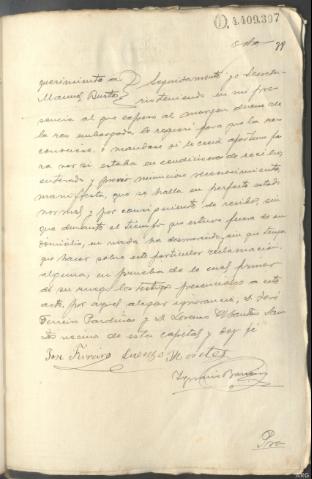 1.409.397
querimiento a Seguidamente yo Secreta-
Manuel Bustos rio teniendo en mi pre-
sencia al que expresa al margen dueño de
la res embargada lo requerí para que la reco-
nociese, o mandase si lo creía oportuno pa-
ra ver si estaba en condiciones de recibo,
enterado y previo minucioso reconocimiento,
manifiesta, que se halla en perfecto estado
normal, y por consiguiente de recibo, sin
que durante el tiempo que estuvo fuera de su
domicilio, en nada ha desmerecido, sin que tenga
que hacer sobre este particular reclamación
alguna, en prueba de lo cual firman
de su ruego los testigos presenciales a este
acto, por aquel alegar ignorancia, D. José
Ferreiro Pardiñas y D. Lorenzo Montes
vecinos de esta capital y doy fé
José Ferreiro Lorenzo Montes
Ignacio